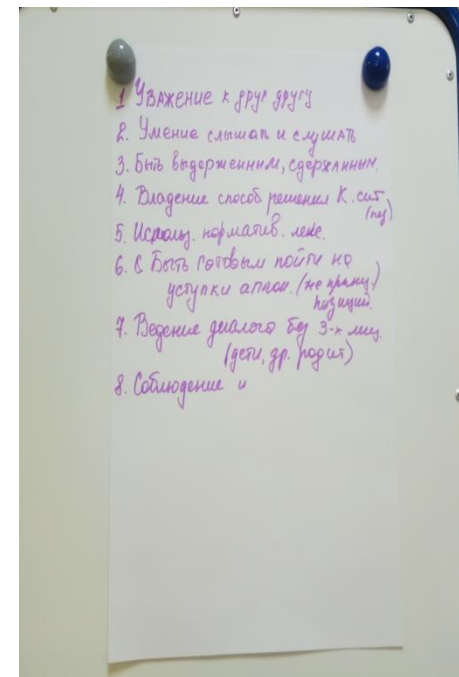 1 Уважение к друг другу
2. Умение слышать и слушать
3. Быть выдержанным, сдержанным.
4. Владение способ решения К. сит
(пед)
5. Использ. норматив. лекс.
6. Быть готовым пойти на
уступки оппон. (не принц.)
позиций.
7. Ведение диалога без 3-х лиц.
(дети, др. родит)
8. Соблюдение и